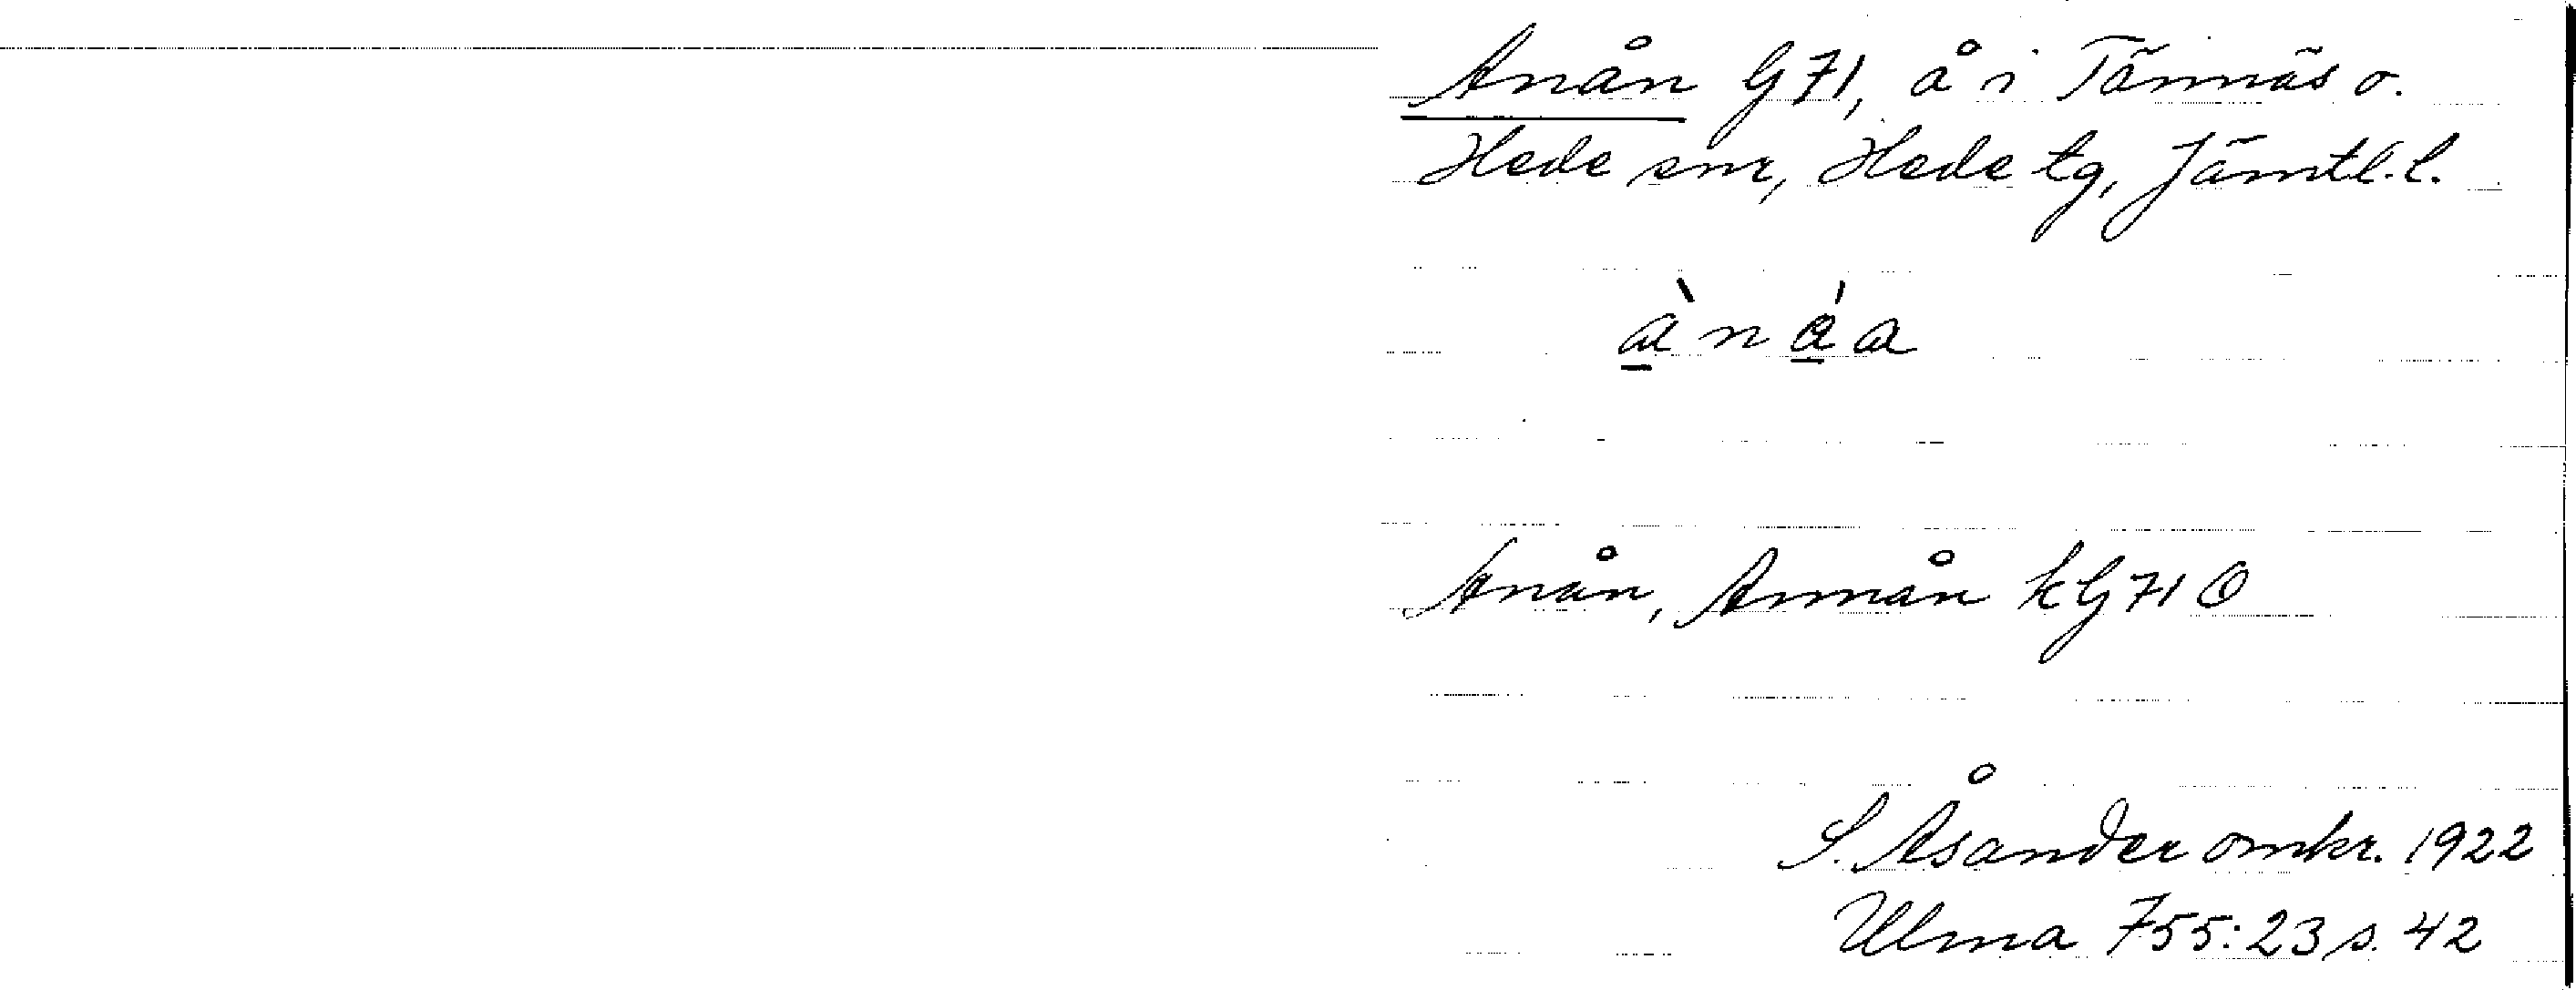 Anån G71, å i Tännäs o.
Hede snr, Hede tg, Jämtl.l.
à̱ n á̱ a
Anån, Annån kG71 O
S. Åsander omkr. 1922
Ulma 755:23 s. 42